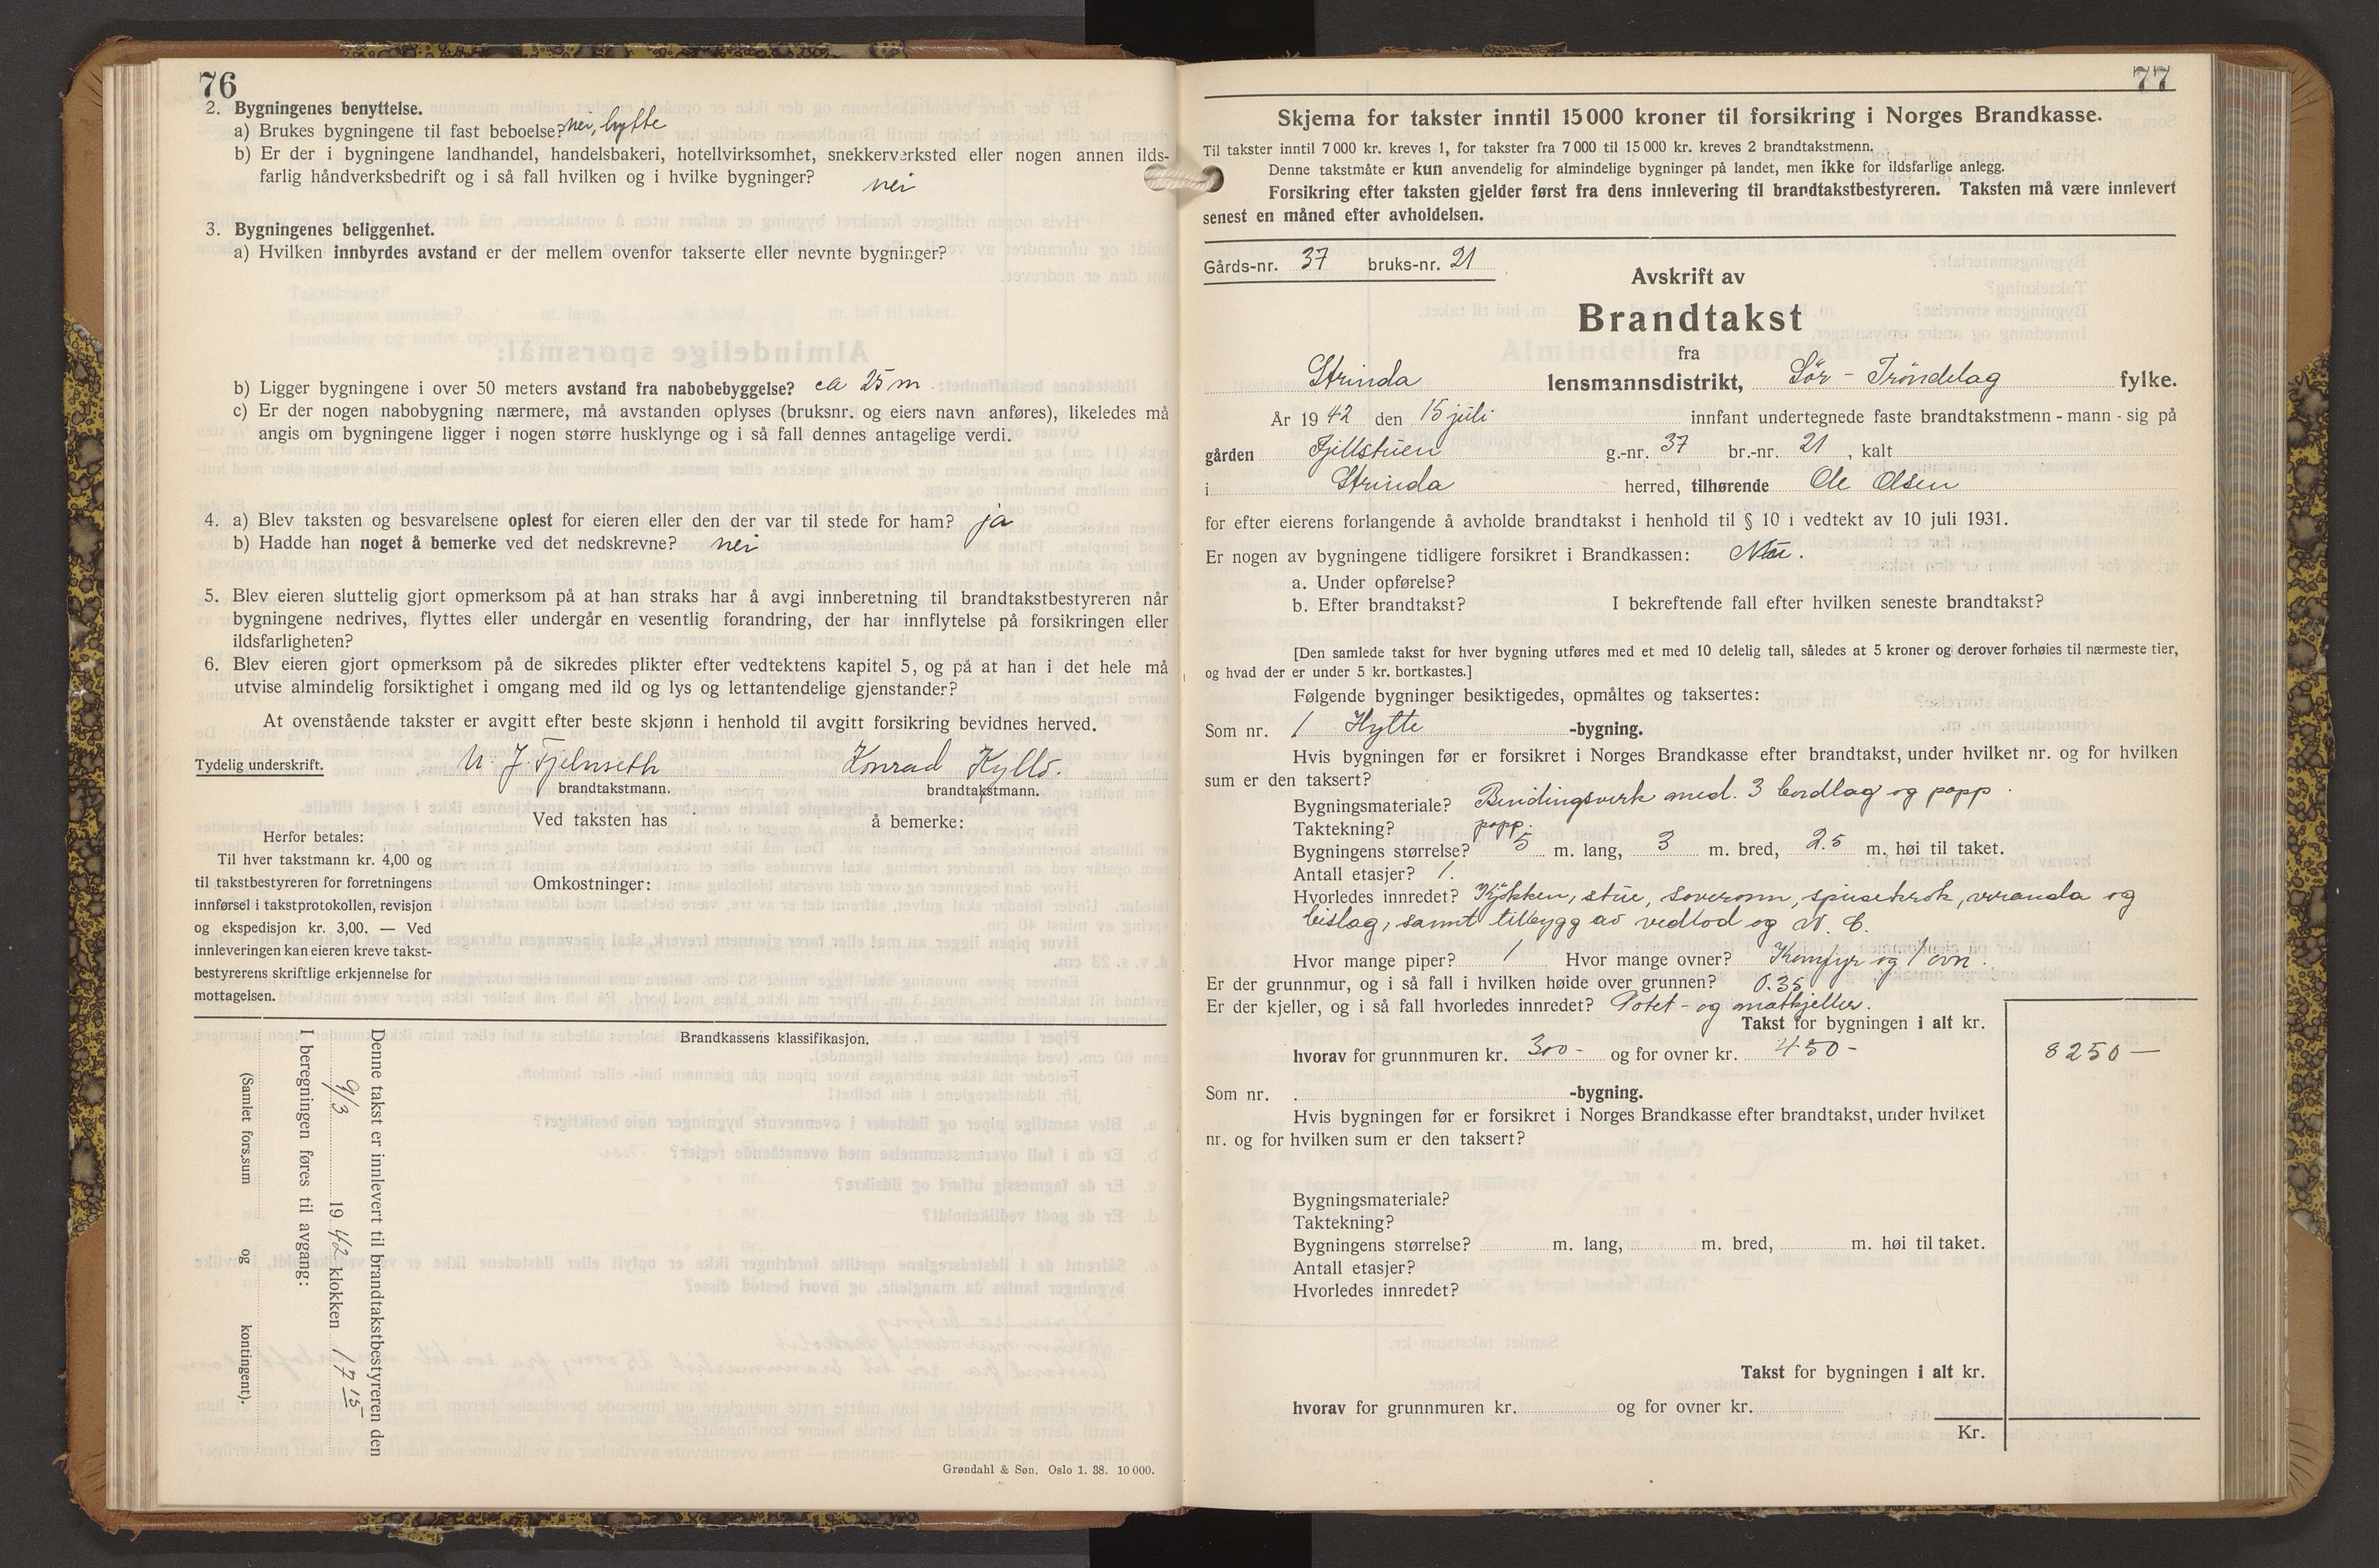 76
2. Bygningenes benyttelse.
a) Brukes bygningene til fast beboelse? nei, hytte
b) Er der i bygningene landhandel, handelsbakeri, hotellvirksomhet, snekkerverksted eller nogen annen ilds-
farlig håndverksbedrift og i så fall hvilken og i hvilke bygninger? nei
3. Bygningenes beliggenhet.
a) Hvilken innbyrdes avstand er der mellem ovenfor takserte eller nevnte bygninger?
b) Ligger bygningene i over 50 meters avstand fra nabobebyggelse? ca 25 m.
c) Er der nogen nabobygning nærmere, må avstanden oplyses (bruksnr. og eiers navn anføres), likeledes må
angis om bygningene ligger i nogen større husklynge og i så fall dennes antagelige verdi.
4. a) Blev taksten og besvarelsene oplest for eieren eller den der var til stede for ham? ja
b) Hadde han noget å bemerke ved det nedskrevne? nei
5. Blev eieren sluttelig gjort opmerksom på at han straks har å avgi innberetning til brandtakstbestyreren når
bygningene nedrives, flyttes eller undergår en vesentlig forandring, der har innflytelse på forsikringen eller
ildsfarligheten?
6. Blev eieren gjort opmerksom på de sikredes plikter efter vedtektens kapitel 5, og på at han i det hele må
utvise almindelig forsiktighet i omgang med ild og lys og lettantendelige gjenstander?
At ovenstående takster er avgitt efter beste skjønn i henhold til avgitt forsikring bevidnes herved.
Tydelig underskrift. N. J. Fjelnseth Konrad Kyllo.
brandtakstmann. brandtakstmann.
Ved taksten has å bemerke:
Herfor betales:
Til hver takstmann kr. 4,00 og
til takstbestyreren for forretningens
innførsel i takstprotokollen, revisjon
og ekspedisjon kr. 3,00. — Ved
innleveringen kan eieren kreve takst-
bestyrerens skriftlige erkjennelse for
mottagelsen.
Omkostninger:
Brandkassens klassifikasjon.
Denne takst er innlevert til brandtakstbestyreren den
9/3 1942 klokken 17 15
I beregningen føres til avgang:
(Samlet fors.sum og kontingent).
Grøndahl & Søn. Oslo 1. 38. 10 000.
77
Skjema for takster inntil 15 000 kroner til forsikring i Norges Brandkasse.
Til takster inntil 7 000 kr. kreves 1, for takster fra 7 000 til 15 000 kr. kreves 2 brandtakstmenn.
Denne takstmåte er kun anvendelig for almindelige bygninger på landet, men ikke for ildsfarlige anlegg.
Forsikring efter taksten gjelder først fra dens innlevering til brandtakstbestyreren. Taksten må være innlevert
senest en måned efter avholdelsen.
Gårds-nr. 37 bruks-nr. 21
Avskrift av
Brandtakst
fra
Strinda lensmannsdistrikt, Sör - Tröndelag fylke.
År 1942 den 15 juli innfant undertegnede faste brandtakstmenn - mann - sig på
gården Fjellstuen g.-nr. 37 br.-nr. 21, kalt
i Strinda herred, tilhørende Ole Olsen
for efter eierens forlangende å avholde brandtakst i henhold til § 10 i vedtekt av 10 juli 1931.
Er nogen av bygningene tidligere forsikret i Brandkassen: Nei.
a. Under opførelse?
b. Efter brandtakst? I bekreftende fall efter hvilken seneste brandtakst?
[Den samlede takst for hver bygning utføres med et med 10 delelig tall, således at 5 kroner og derover forhøies til nærmeste tier,
og hvad der er under 5 kr. bortkastes.]
Følgende bygninger besiktigedes, opmåltes og taksertes:
Som nr. 1 Hytte -bygning.
Hvis bygningen før er forsikret i Norges Brandkasse efter brandtakst, under hvilket nr. og for hvilken
sum er den taksert?
Bygningsmateriale? Bindingsverk med. 3 bordlag og papp.
Taktekning? papp.
Bygningens størrelse? 5 m. lang, 3 m. bred, 2.5 m. høi til taket.
Antall etasjer? 1.
Hvorledes innredet? Kjökken, stue, soverom, spisekrok, veranda og
bislag, samt tilbygg av vedbod og W. C.
Hvor mange piper? 1 Hvor mange ovner? Komfyr og 1 ovn.
Er der grunnmur, og i så fall i hvilken høide over grunnen? 0.35
Er der kjeller, og i så fall hvorledes innredet? Potet- og matkjeller.
Takst for bygningen i alt kr.
hvorav for grunnmuren kr. 300 - og for ovner kr. 450 - 8250 —
Som nr. -bygning.
Hvis bygningen før er forsikret i Norges Brandkasse efter brandtakst, under hvilket
nr. og for hvilken sum er den taksert?
Bygningsmateriale?
Taktekning?
Bygningens størrelse? m. lang, m. bred, m. høi til taket.
Antall etasjer?
Hvorledes innredet?
Takst for bygningen i alt kr.
hvorav for grunnmuren kr. og for ovner kr.
Kr.